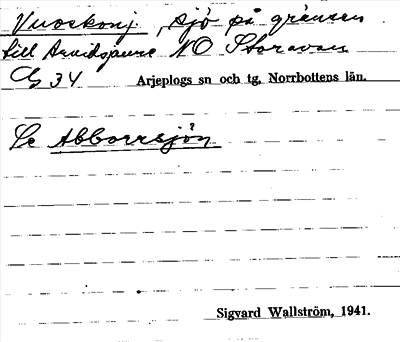 Vuoskonj. , sjö på gränsen
till Arvidsjaure NO Storavan
G 34 Arjeplogs sn och tg, Norrbottens län.
Se Abborrsjön
Sigvard Wallström, 1941.